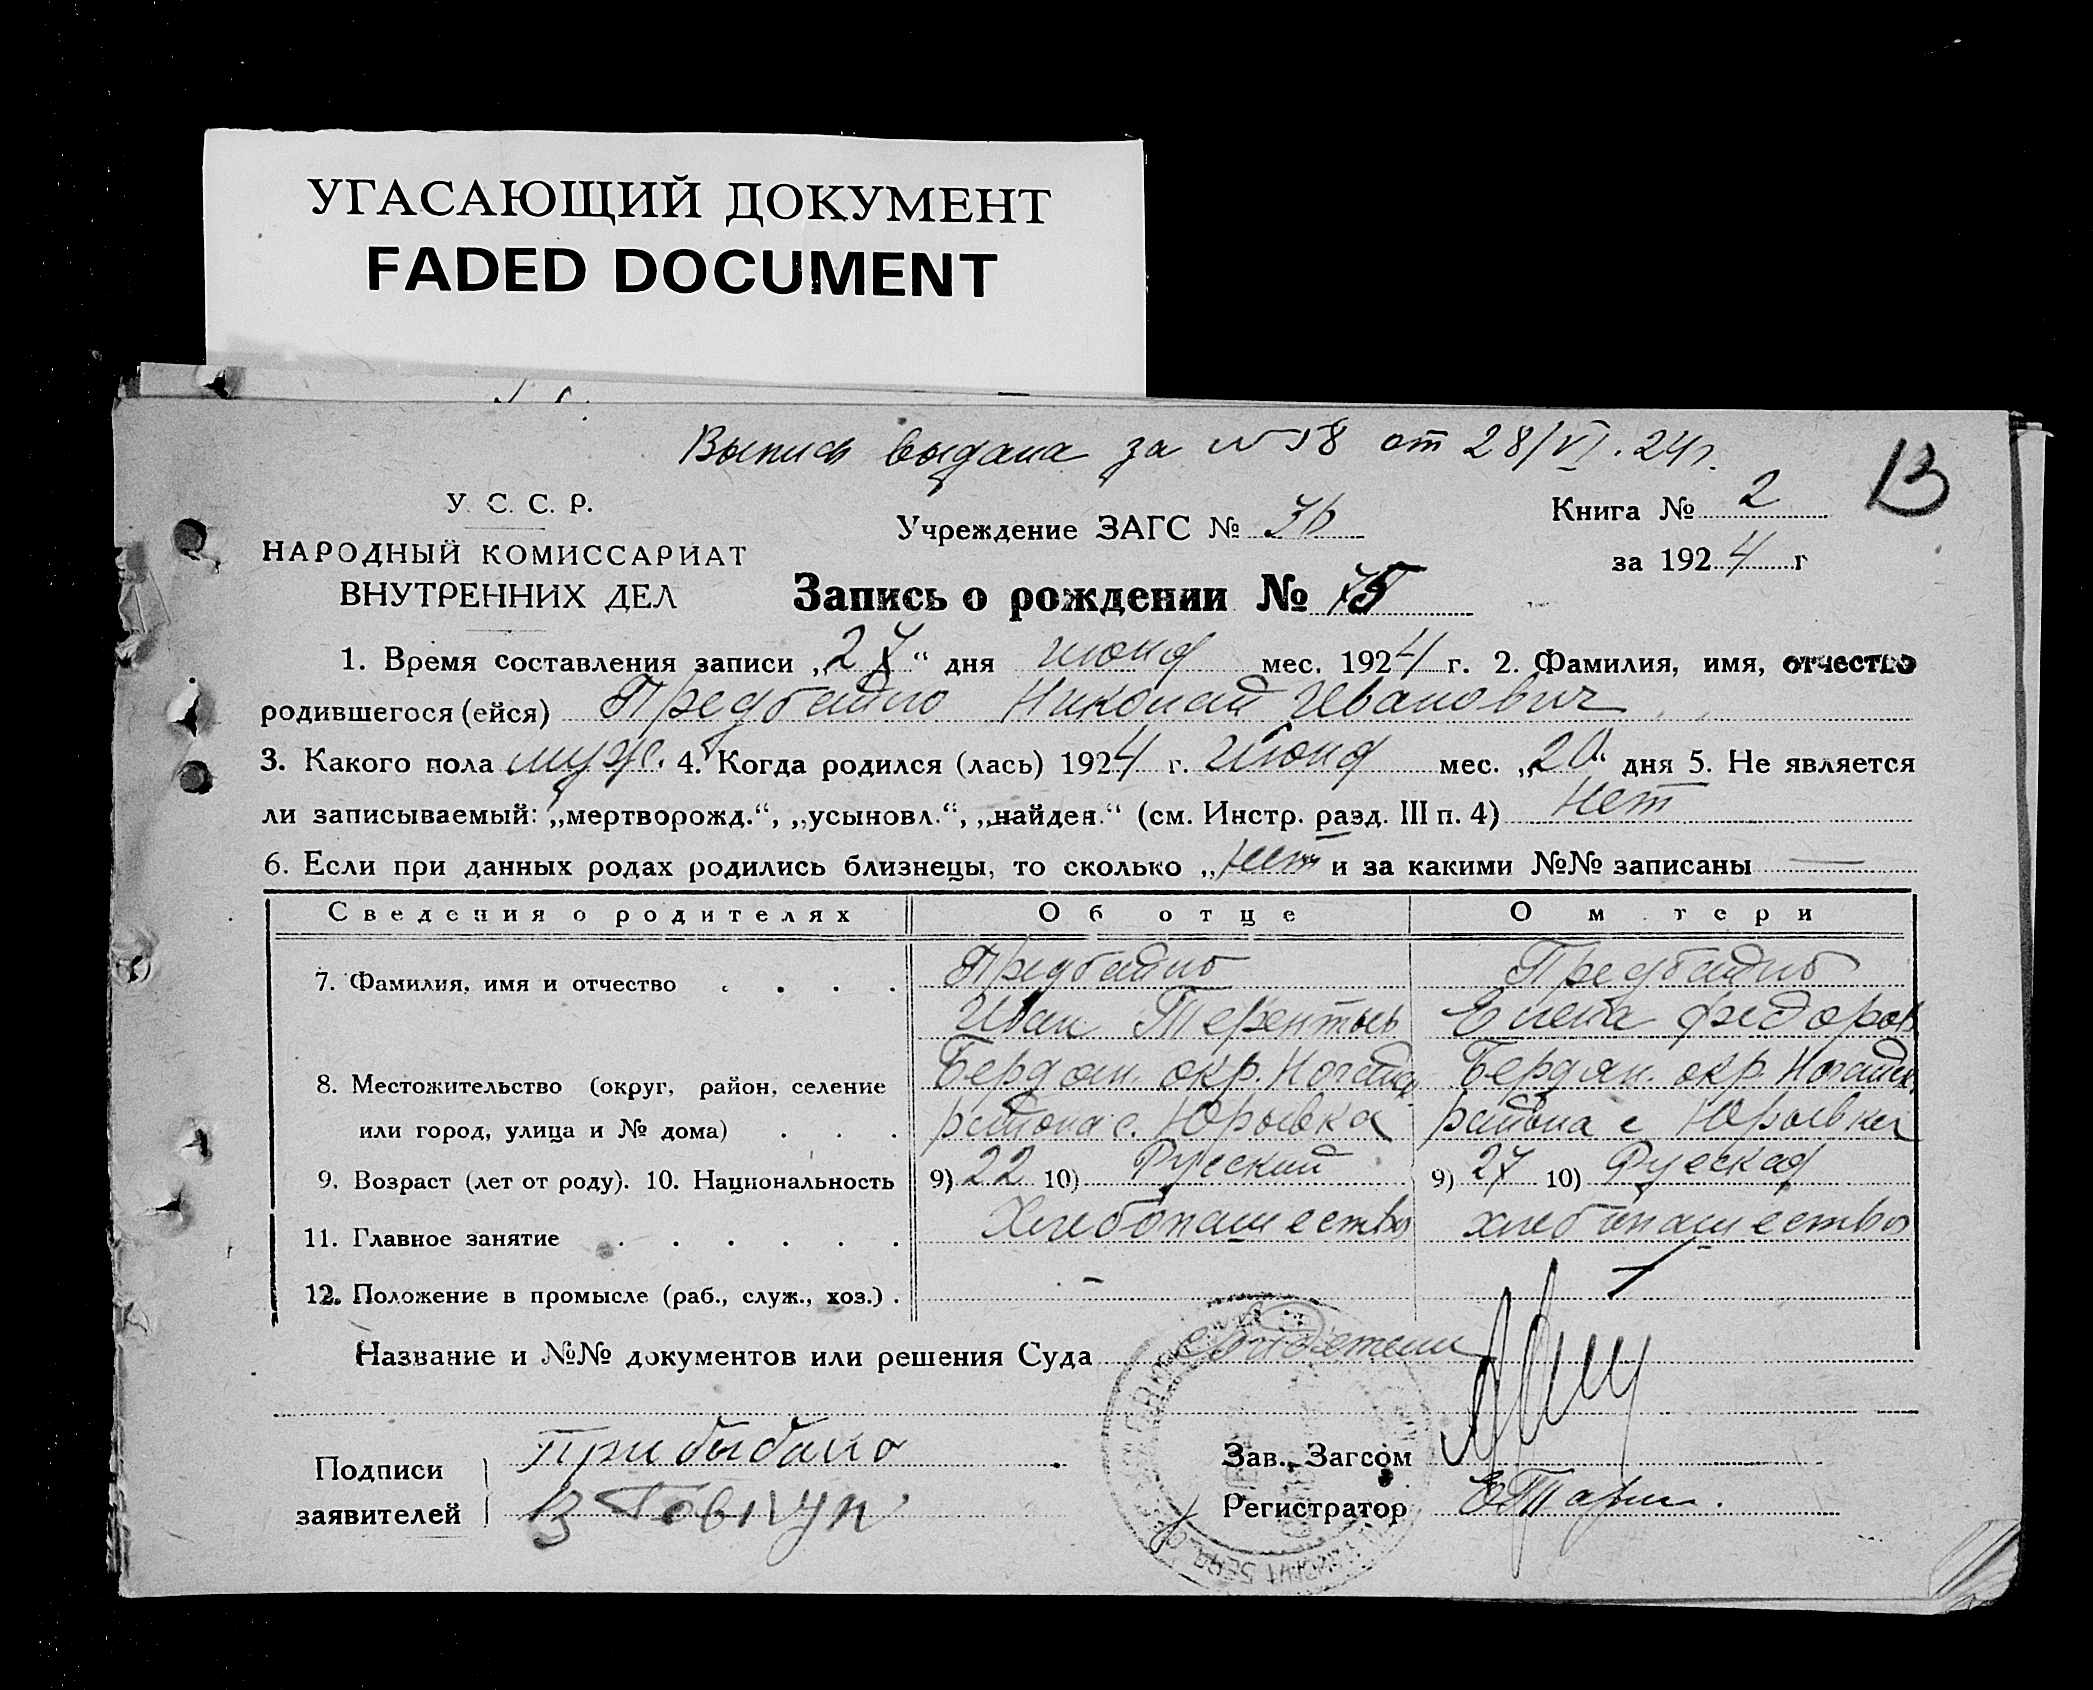 УГАСАЮЩИЙ ДОКУМЕНТ
FADED DOCUMENT
Выпись выдана за № 58 от 28/VI.24г.
13
У. С. С. Р.
НАРОДНЫЙ КОМИССАРИАТ
ВНУТРЕННИХ ДЕЛ
Учреждение ЗАГС №
Книга № 2
за 1924 г
Запись о рождении № 75
1. Время составления записи „27“ дня июня мес. 1924 г. 2. Фамилия, имя, отчество
родившегося (ейся) Предбайло Николай Иванович
3. Какого пола муж. 4. Когда родился (лась) 1924 г. Июня мес. „20“ дня 5. Не является
ли записываемый: „мертворожд.“, „усыновл.“, „найден.“ (см. Инстр. разд. III п. 4) нет
6. Если при данных родах родились близнецы, то сколько „нет и за какими №№ записаны —
Сведения о родителях Об отце О м тери
7. Фамилия, имя и отчество Предбайло Предбайло
Иван Терентьев Елена Федоров
8. Местожительство (округ, район, селение Бердян. окр. Ногайск Бердян. окр. Ногайск.
или город, улица и № дома) района с. Юрьевка района с Юрьевка
9. Возраст (лет от роду). 10. Национальность 9) 22 10) Русский 9) 27 10) Руская
11. Главное занятие Хлебопашество хлебопашество
12. Положение в промысле (раб., служ., хоз.) . –
Название и №№ документов или решения Суда
Подписи
заявителей
Прибыбайло
Зав. Загсом
Регистратор